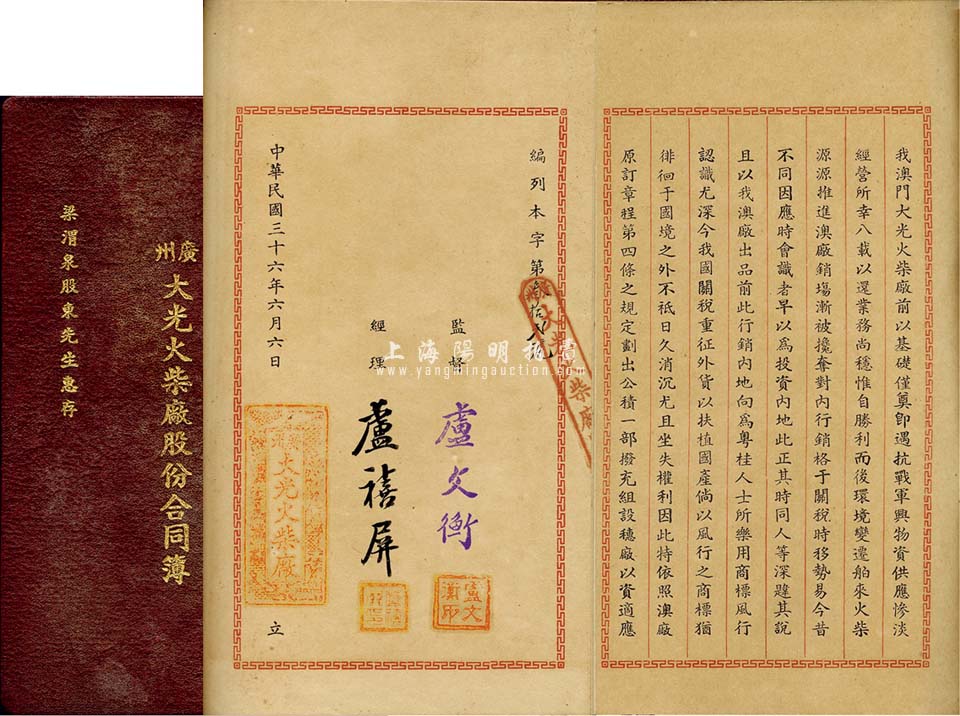 梁渭泉股東先生惠存
廣州
大光火柴廠股份合同簿
我澳門大光火柴廠前以基礎僅奠卽遇抗戰軍興物資供應慘淡
經營所幸八載以還業務尚穩惟自勝利而後環境變遷舶來火柴
源源推進澳廠銷塲漸被攙奪對內行銷格于關稅時移勢易今昔
不同因應時會識者早以爲投資內地此正其時同人等深韙其說
且以我澳廠出品前此行銷內地向爲粵桂人士所樂用商標風行
認識尤深今我國關稅重征外貨以扶植國產倘以風行之商標猶
徘徊于國境之外不衹日久消沉尤且坐失權利因此特依照澳廠
原訂章程第四條之規定劃出公積一部撥充組設穗廠以資適應
編列本字第
監督
盧文衡
經理
盧禧屏
中華民國三十六年六月六日
立
大光火柴廠
盧文衡印
上海陽明拍賣
www.yangmingauction.com